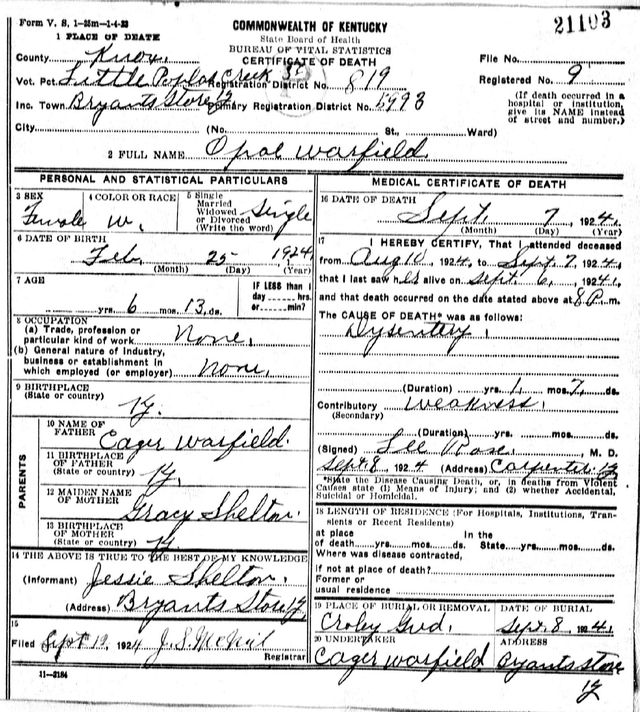 Form V. S. 1-25m-1-4-23
COMMONWEALTH OF KENTUCKY
21103
1 PLACE OF DEATH
State Board of Health
BUREAU OF VITAL STATISTICS
CERTIFICATE OF DEATH
County Knox.
File No.
Vot. Pct. Little Poplar Creek 35 Registration District No. 819
Registered No. 9
Inc. Town Bryants Store Ky Primary Registration District No. 5993
(If death occurred in a hospital or institution, give its NAME instead of street and number.)
City (No. St., Ward)
2 FULL NAME Opal Warfield.
PERSONAL AND STATISTICAL PARTICULARS
3 SEX Female
4 COLOR OR RACE W.
5 Single Married Widowed or Divorced (Write the word) Single
6 DATE OF BIRTH
Feb. 25 1924.
(Month) (Day) (Year)
7 AGE
yrs. 6 mos. 13. ds.
IF LESS than 1 day hrs. or min?
8 OCCUPATION
(a) Trade, profession or particular kind of work None.
(b) General nature of Industry, business or establishment in which employed (or employer) None.
9 BIRTHPLACE
(State or country) Ky.
PARENTS
10 NAME OF FATHER Eager Warfield.
11 BIRTHPLACE OF FATHER
(State or country) Ky.
12 MAIDEN NAME OF MOTHER Gracy Shelton.
13 BIRTHPLACE OF MOTHER
(State or country) Ky.
14 THE ABOVE IS TRUE TO THE BEST OF MY KNOWLEDGE
(Informant) Jessie Shelton.
(Address) Bryants Store Ky
15
Filed Sept 19, 1924 J. S. McNeil
Registrar
11-3184
MEDICAL CERTIFICATE OF DEATH
16 DATE OF DEATH
Sept. 7, 1924.
(Month) (Day) (Year)
17 I HEREBY CERTIFY, That I attended deceased
from Aug 10, 1924, to Sept. 7, 1924,
that I last saw her alive on Sept. 6, 1924,
and that death occurred on the date stated above at 8 P. m.
The CAUSE OF DEATH* was as follows:
Dysentery.
(Duration) yrs. 1. mos. 7. ds.
Contributory Weakness.
(Secondary)
(Duration) yrs. mos. ds.
(Signed) Lee Rose, M. D.
Sept. 8, 1924 (Address) Carpenter Ky
*State the Disease Causing Death, or, in deaths from Violent Causes state (1) Means of Injury; and (2) whether Accidental, Suicidal or Homicidal.
18 LENGTH OF RESIDENCE (For Hospitals, Institutions, Transients or Recent Residents)
at place of death yrs. mos. ds. In the State yrs. mos. ds.
Where was disease contracted,
if not at place of death?
Former or usual residence
19 PLACE OF BURIAL OR REMOVAL
Croley Gvd.
DATE OF BURIAL
Sept. 8, 1924.
20 UNDERTAKER
Eager Warfield.
ADDRESS
Bryants Store
Ky